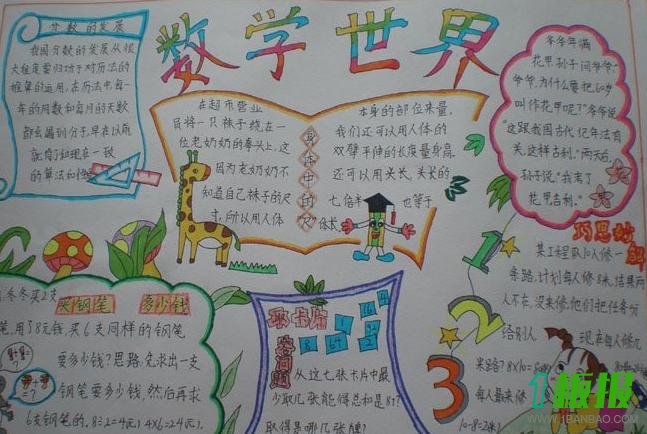 数学世界
分数的发展
我国分数的发展从很
大程度要归功于对历法的
框算的运用,在历法中,每
年的周数和每月的天数
都会遇到分子,早在以前
就有了和现在一致
的算法和
在超市营业
员将一只袜子绕在一
位老奶奶的拳头上,这
因为老奶奶不
知道自己袜子的尺
寸,所以用人体
身体中的“尺”
本身的部位来量,
我们还可以用人体的
双臂平伸的长度量身高,
还可以用头长,头长的
七倍半 也等于
体长
爷爷年满
花甲,孙子问爷爷:“
爷爷,为什么要把60岁
叫作花甲呢?”爷爷说:
“这跟我国古代纪年法有
关,这样吉利。”两天后,
孙子说:“我末了
花甲吉利。”
巧思妙解
某工程队10人修一
条路,计划每人修8米,结果两
人不在,没来修,他们把任务分
给别人 现在每人修几
米路?8×10=80
每人最来修
10-8=2
1
2
3
买钢笔 多少钱
冬冬买2支
笔,用了8元钱,买6支同样的钢笔
要多少钱?思路:先求出一支
钢笔要多少钱,然后再求
6支钢笔的,8÷2=4(元) 4×6=24(元)。
取卡片
答问题
64 16
1
32
8
从这七张卡片中最
少取几张能得总和是81?
取得是哪几张呢?
1板报
WWW.1BANBAO.COM